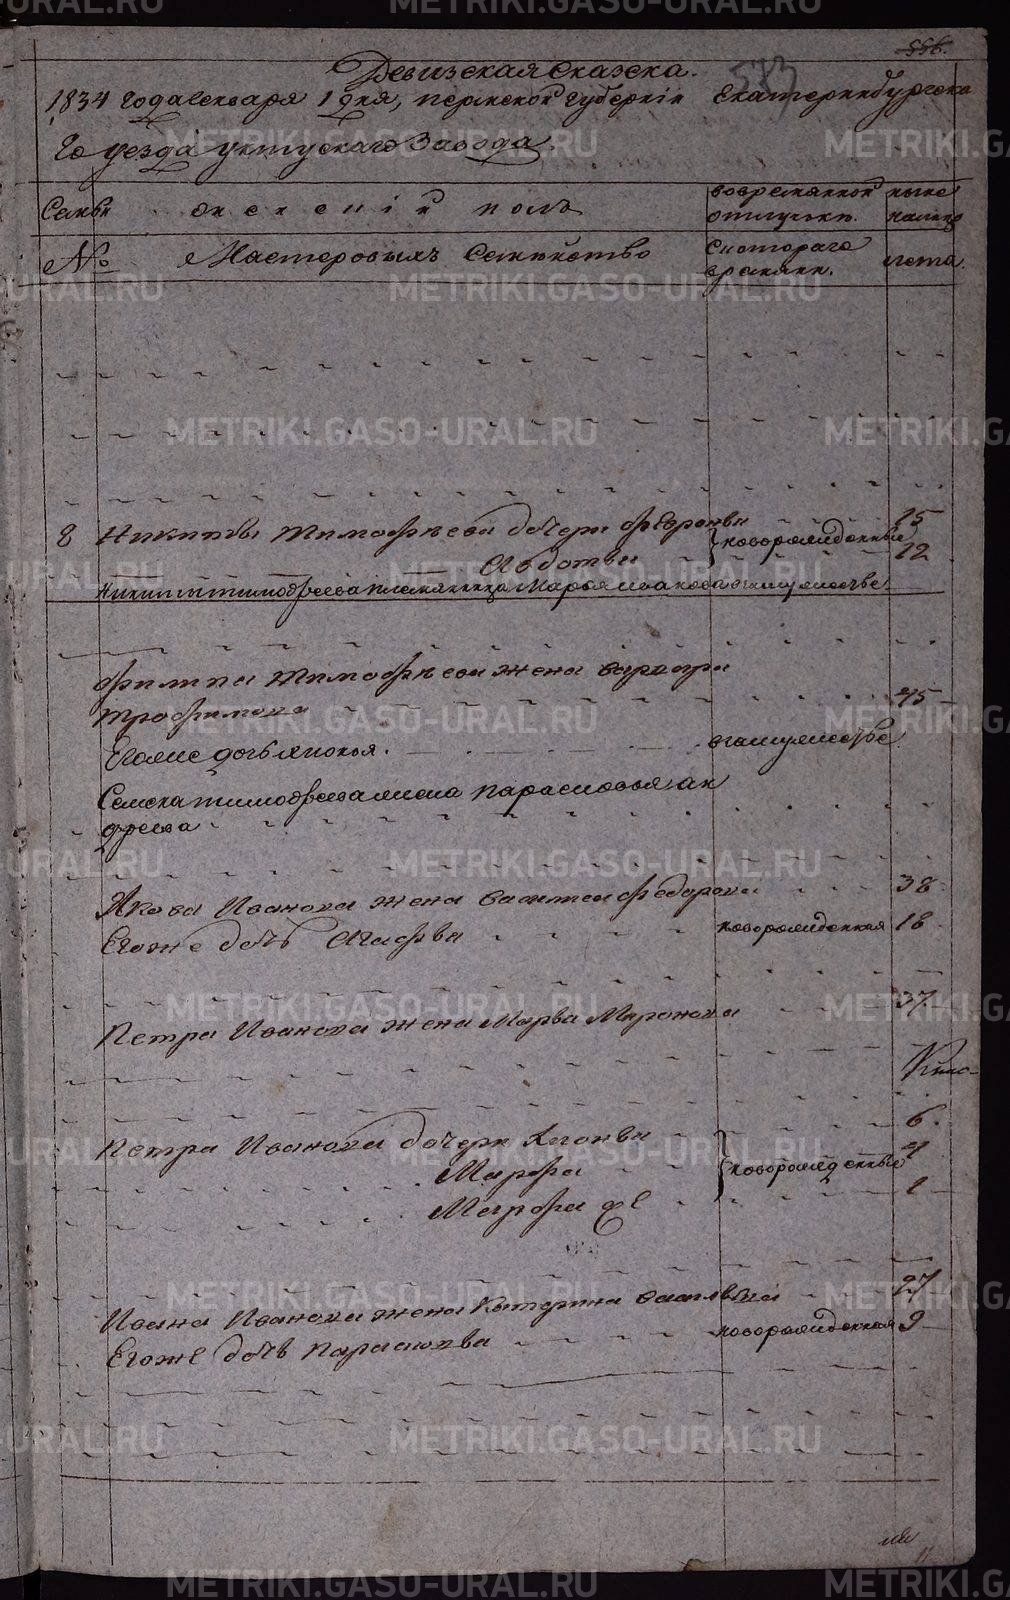 556.
583
Ревизская Сказка.
1834 года Генваря 1 дня, Пермской Губернiи Екатеринбургска
го уезда уктускаго Завода.
Семьи женской полъ вовременной отлучке. ныне налицо
№ Мастеровыхъ Семейство Скотораго времяни. лета.
8 Никиты Тимофеева дочери Феврон[ь]и 15
новорожденные
Любовь 12
Никиты тимофеева племянница Марья ивановна взамужестве
Филипа Тимофеева жена Варвара
трофимова 45
Егоже дочь
взамужестве
Семена тимофеева жена парасковья ан
дреева
Якова Иванова жена Василиса Федорова 38
Егоже дочь Агафья новорожденная 18
Петра Иванова жена Марва Миронова 37
Петра Иванова дочери 6.
Марфа новорожденные 4
Марфа же 1
Ивана Иванова жена Катерина васильева 27
Егоже дочь Парасковья новорожденная 9
METRIKI.GASO-URAL.RU